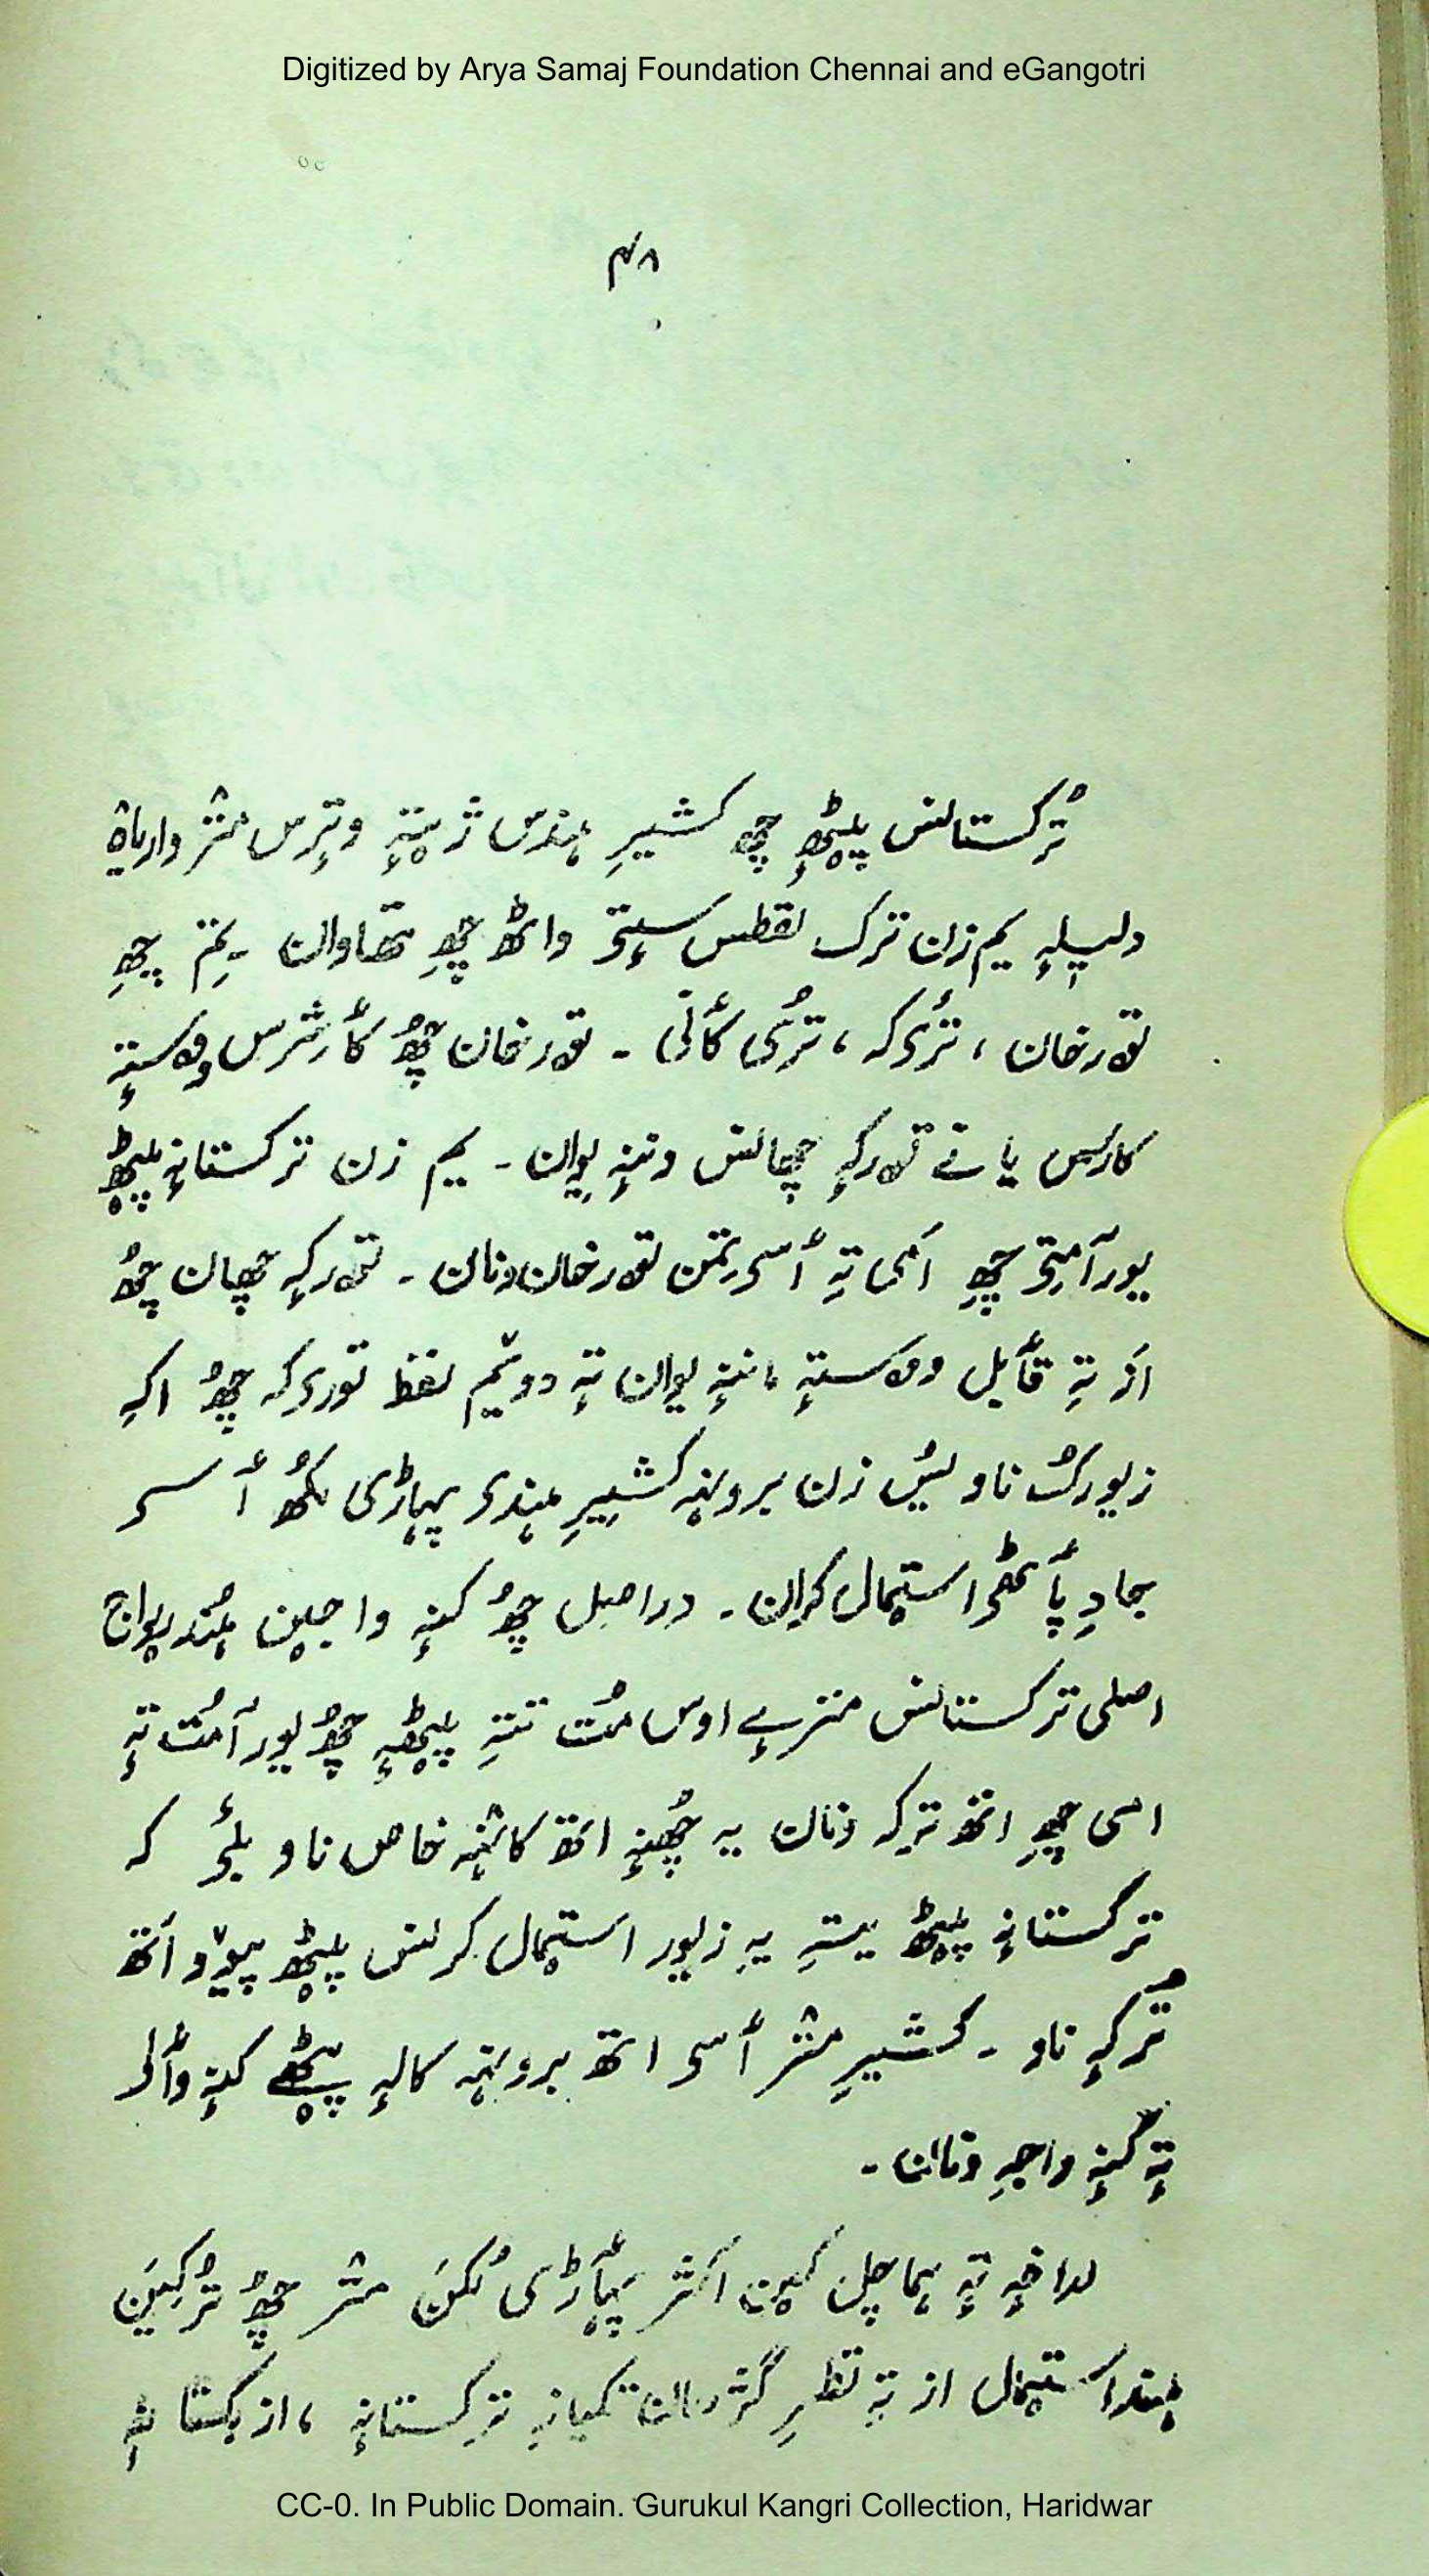 Digitized by Arya Samaj Foundation Chennai and eGangotri
۴۸
تُرکستانس پیٹھٕ چھِ کشیرِ ہندس ژٕنتہٕ وتٕرس منٛز واریاہ
دلیلہٕ یم زن ترک لفظس سٟتۍ واٹھ چھِ تھاوان ۔ یِم چھِ
تورخان ، تُرکہ ، تُرکی کٲنۍ ۔ تورخان چھُ کٲشرس وۄستہٕ
کارس یا نے تورکہٕ چھانس وننہٕ یوان ۔ یم زن ترکستانہٕ پیٹھٕ
یور آمتۍ چھِ اَمی تہِ ٲسۍ یمن تورخان ونان ۔ تورکہٕ چھان چھُ
اَز تہِ قٲبل وۄستہٕ ، ننہٕ یوان تہٕ دویٚم لفظ تورکہ چھُ اکہِ
زیورُک ناو یُس زن برونہہ کشیرِ ہندۍ پہاڑی لُکھ ٲسۍ
جادِ پٲٹھۍ استعمال کران ۔ دراصل چھُ کنہٕ واجین ہُند رواج
اصلی ترکستانس منزے اوس مُت تتہِ پیٹھٕ چھُ یور آمُت تہٕ
اسی چھِ اتھ ترکہ ونان یہ چھُنہٕ اتھ کانٛہہ خاص ناو بلۍ کہ
ترکستانہٕ پیٹھ یتہِ یہِ زیور استعمال کرنس پیٹھ پیوٚو اَتھ
تُرکہٕ ناو ۔ کشیرِ منٛز ٲسۍ اتھ برونہہ کالہٕ پیٹھے کنہٕ وٲلۍ
تہٕ کنہٕ واجہِ ونان ۔
لداخہٕ تہٕ ہماچل کین اکثر پہٲڑی لُکن منٛز چھُ تُرکین
ہند استعمال از تہِ نظرِ گژھان تکیازِ ترکستانہٕ ، ازبکستانہٕ
CC-0. In Public Domain. Gurukul Kangri Collection, Haridwar